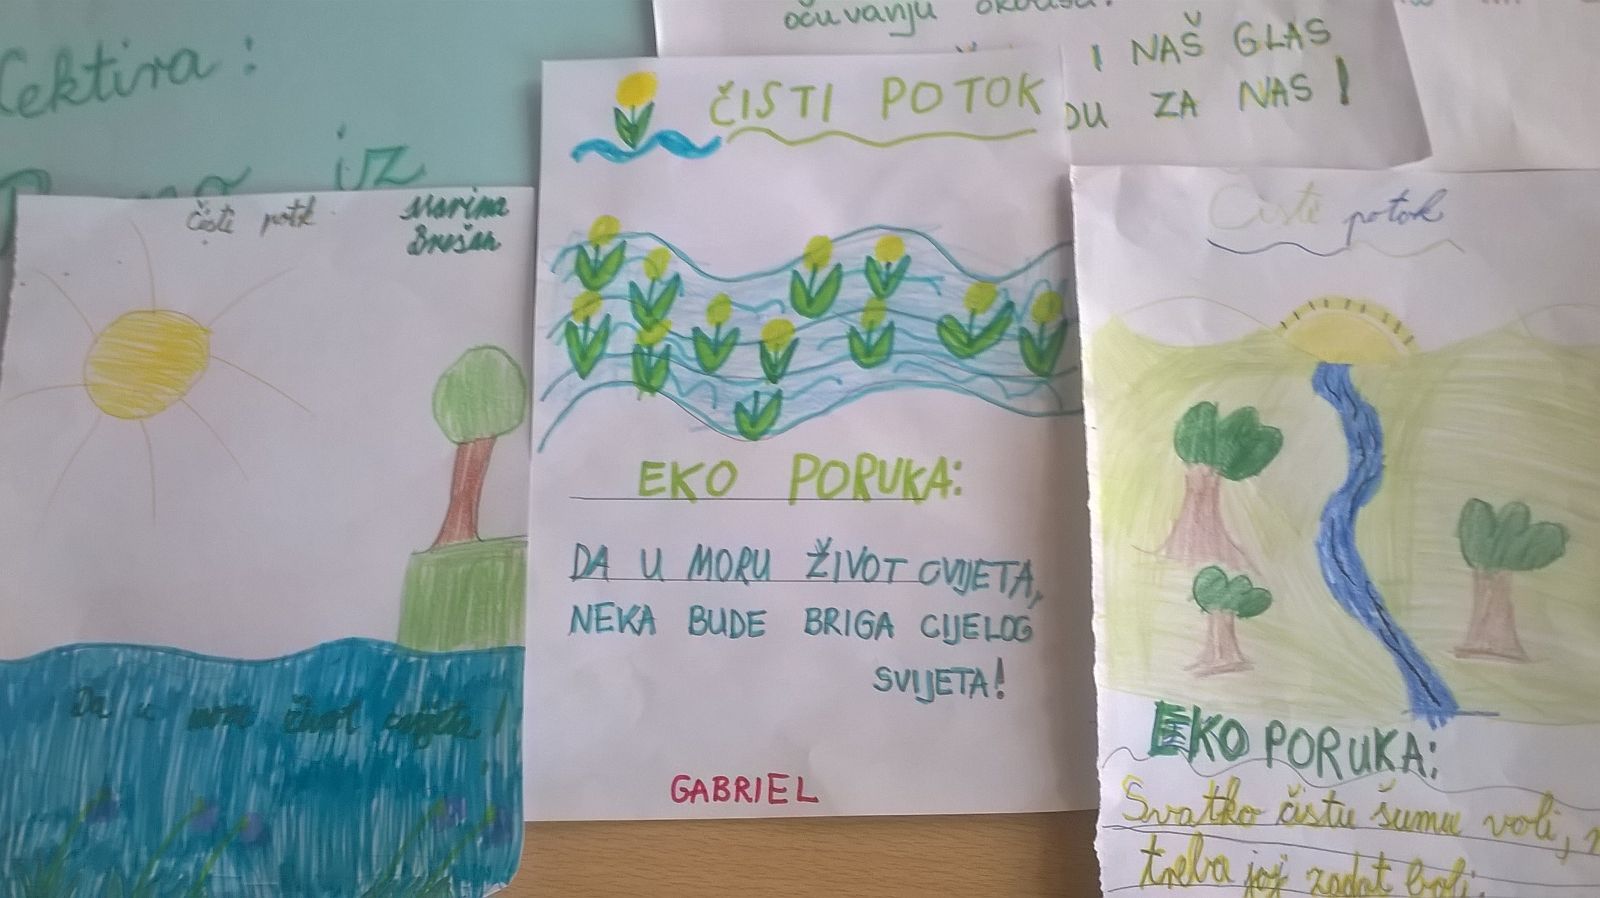 Lektira:
iz
očuvanju okoliša.
I NAŠ GLAS
ZA NAS!
čisti potok
Marina
ČISTI POTOK
EKO PORUKA:
DA U MORU ŽIVOT CVIJETA,
NEKA BUDE BRIGA CIJELOG
SVIJETA!
GABRIEL
Da u moru život cvijeta!
Čisti potok
EKO PORUKA:
Svatko čistu šumu voli,
treba joj zadat boli.